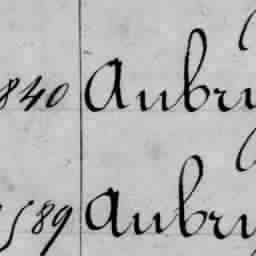 840 Aubry
589 Aubry